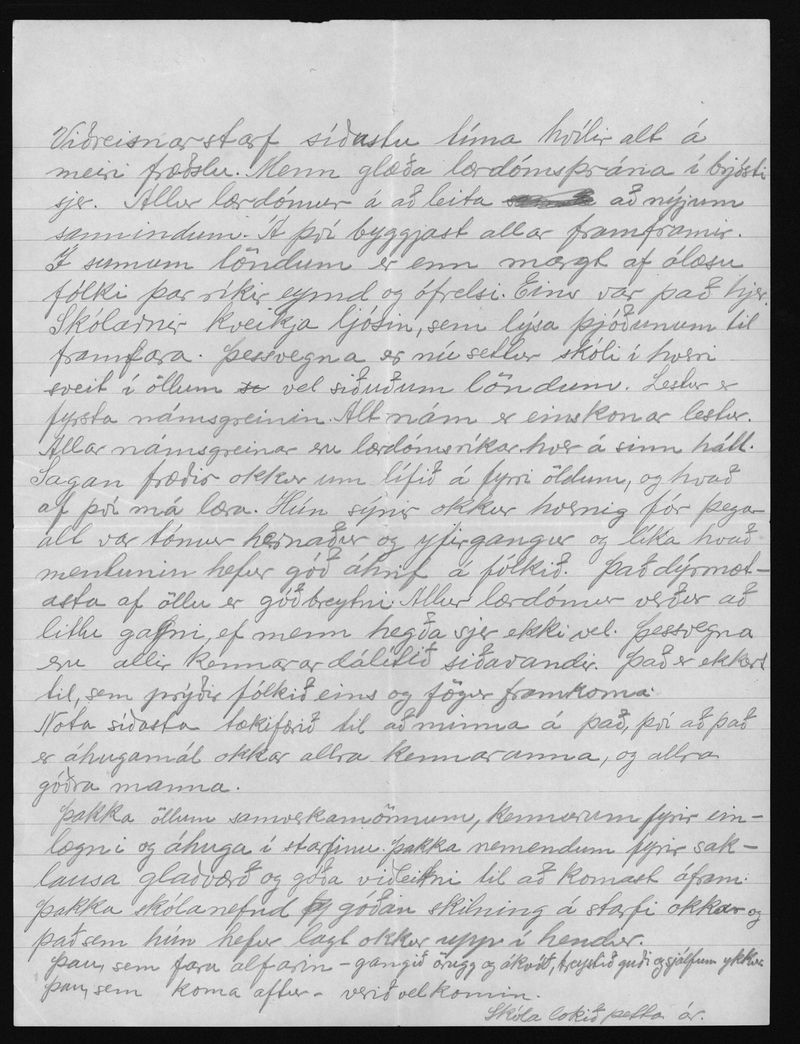 Viðreisnarstarf síðustu tíma hvílir alt á
meiri fræðslu. Menn glæða lærdómsþrána í brjósti
sjer. Allur lærdómur á að leita að nýjum
sannindum. Á því byggjast allar framframir.
Í sumum löndum er enn margt af ólæsu
fólki þar ríkir eymd og ófrelsi. Eins var það hjer.
Skólarnir kveikja ljósin, sem lýsa þjóðunum til
framfara. Þessvegna er nú settur skóli í hverri
sveit í öllum vel siðuðum löndum. Lestur er
fyrsta námsgreinin. Alt nám er einskonar lestur.
Allar námsgreinar eru lærdómsríkar hver á sinn hátt.
Sagan fræðir okkur um lífið á fyrri öldum, og hvað
af því má læra. Hún sýnir okkur hvernig fór þegar
alt var tómur hernaður og yfirgangur og líka hvað
mentunin hefur góð áhrif á fólkið. Það dýrmæt-
asta af öllu er góð breytni. Allur lærdómur verður að
litlu gagni, ef menn hegða sjer ekki vel. Þessvegna
eru allir kennarar dálítið siðavandir. Það er ekkert
til, sem prýðir fólkið eins og fögur framkoma.
Nota síðasta tækifærið til að minna á það, því að það
er áhugamál okkar allra kennaranna, og allra
góðra manna.
Þakka öllum samverkamönnum, kennurum fyrir ein-
lægni og áhuga í starfinu. Þakka nemendum fyrir sak-
lausa glaðværð og góða viðleitni til að komast áfram.
Þakka skólanefnd góðan skilning á starfi okkar og
það sem hún hefur lagt okkur upp í hendur.
Þau, sem fara alfarin - gangið örugg og ákvðé, treystið guði og sjálfum ykkur
Þau, sem koma aftur - verið velkomin.
Skóla lokið þetta ár.